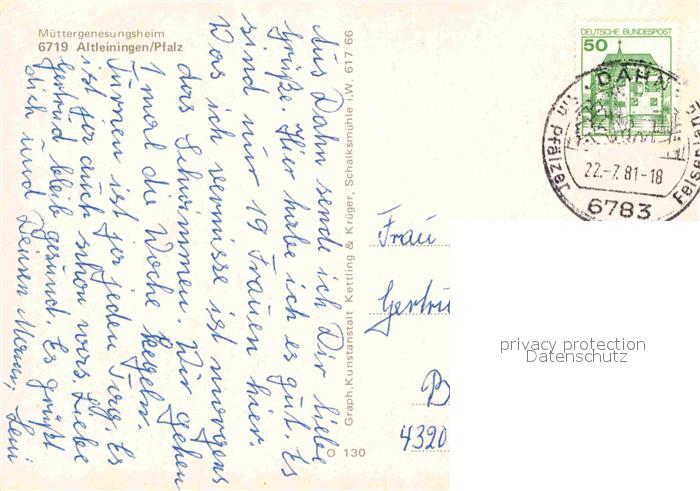 Müttergenesungsheim
6719 Altleiningen/Pfalz
Aus Dahn sende ich Dir liebe
Grüße. Hier habe ich es gut. Es
sind nur 19 Frauen hier.
Was ich vermisse ist morgens
das Schwimmen. Wir gehen
1 mal die Woche kegeln.
Turnen ist ja jeden Tag. Es
ist ja auch schon was. Liebe
Gertrud bleib gesund. Es grüßt
dich und Deinen Mann, Leni
Graph. Kunstanstalt Kettling & Krüger, Schalksmühle i.W. 617 66
O 130
DEUTSCHE BUNDESPOST
50
DAHN
im Pfälzer
Felsenland
22.-7.81-18
6783
Frau
Gertru
B
4320
privacy protection
Datenschutz